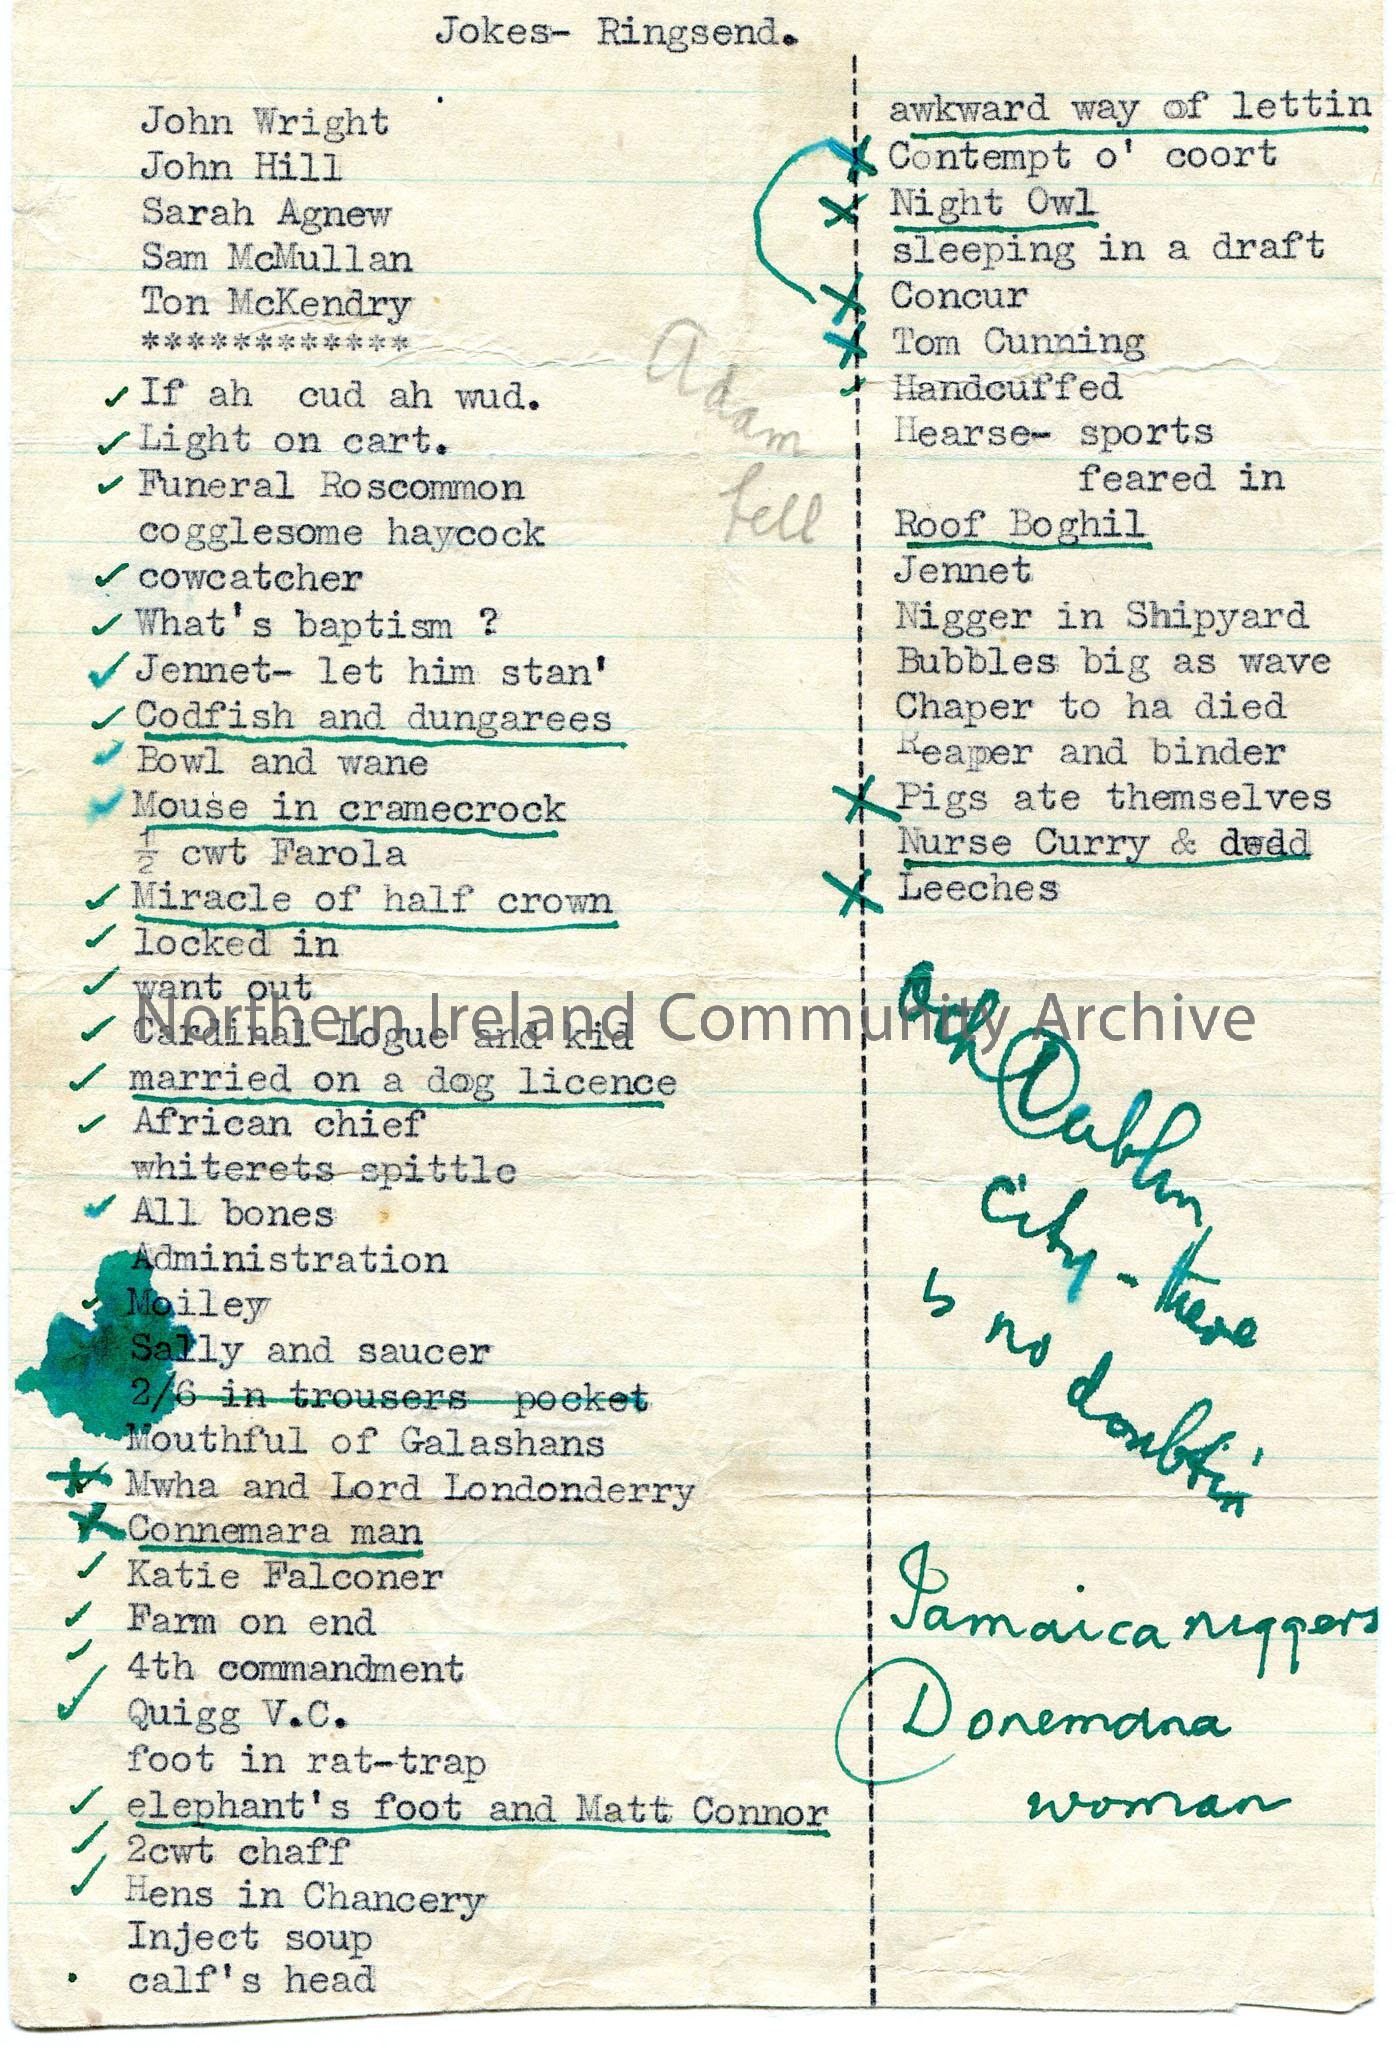 Jokes- Ringsend.
John Wright
John Hill
Sarah Agnew
Sam McMullan
Ton McKendry
************
If ah cud ah wud.
Light on cart.
Funeral Roscommon
cogglesome haycock
cowcatcher
What's baptism ?
Jennet- let him stan'
Codfish and dungarees
Bowl and wane
Mouse in cramecrock
½ cwt Farola
Miracle of half crown
locked in
want out
Cardinal Logue and kid
married on a dog licence
African chief
whiterets spittle
All bones
Administration
Moiley
Sally and saucer
2/6 in trousers pocket
Mouthful of Galashans
Mwha and Lord Londonderry
Connemara man
Katie Falconer
Farm on end
4th commandment
Quigg V.C.
foot in rat-trap
elephant's foot and Matt Connor
2cwt chaff
Hens in Chancery
Inject soup
calf's head
Adam
fell
awkward way of lettin
Contempt o' coort
Night Owl
sleeping in a draft
Concur
Tom Cunning
Handcuffed
Hearse- sports
feared in
Roof Boghil
Jennet
Nigger in Shipyard
Bubbles big as wave
Chaper to ha died
Reaper and binder
Pigs ate themselves
Nurse Curry & dwdd
Leeches
Och Dublin
City - there
is no doubtin'
Jamaica niggers
Donemana
woman
Northern Ireland Community Archive